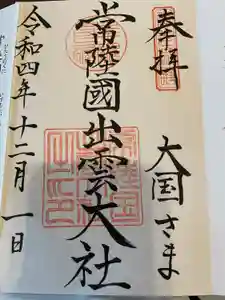 奉拝
大国さま
常陸國出雲大社
令和四年十二月一日